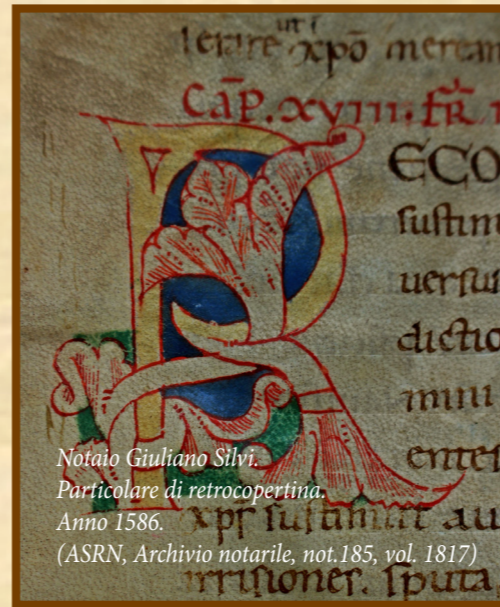 lerare xpō meream
Cāp. xviii. fr̄
ECO
sustin
uersu
dictio
enter
xpr sustinuit au
irrisiones. sputa
Notaio Giuliano Silvi.
Particolare di retrocopertina.
Anno 1586.
(ASRN, Archivio notarile, not.185, vol. 1817)